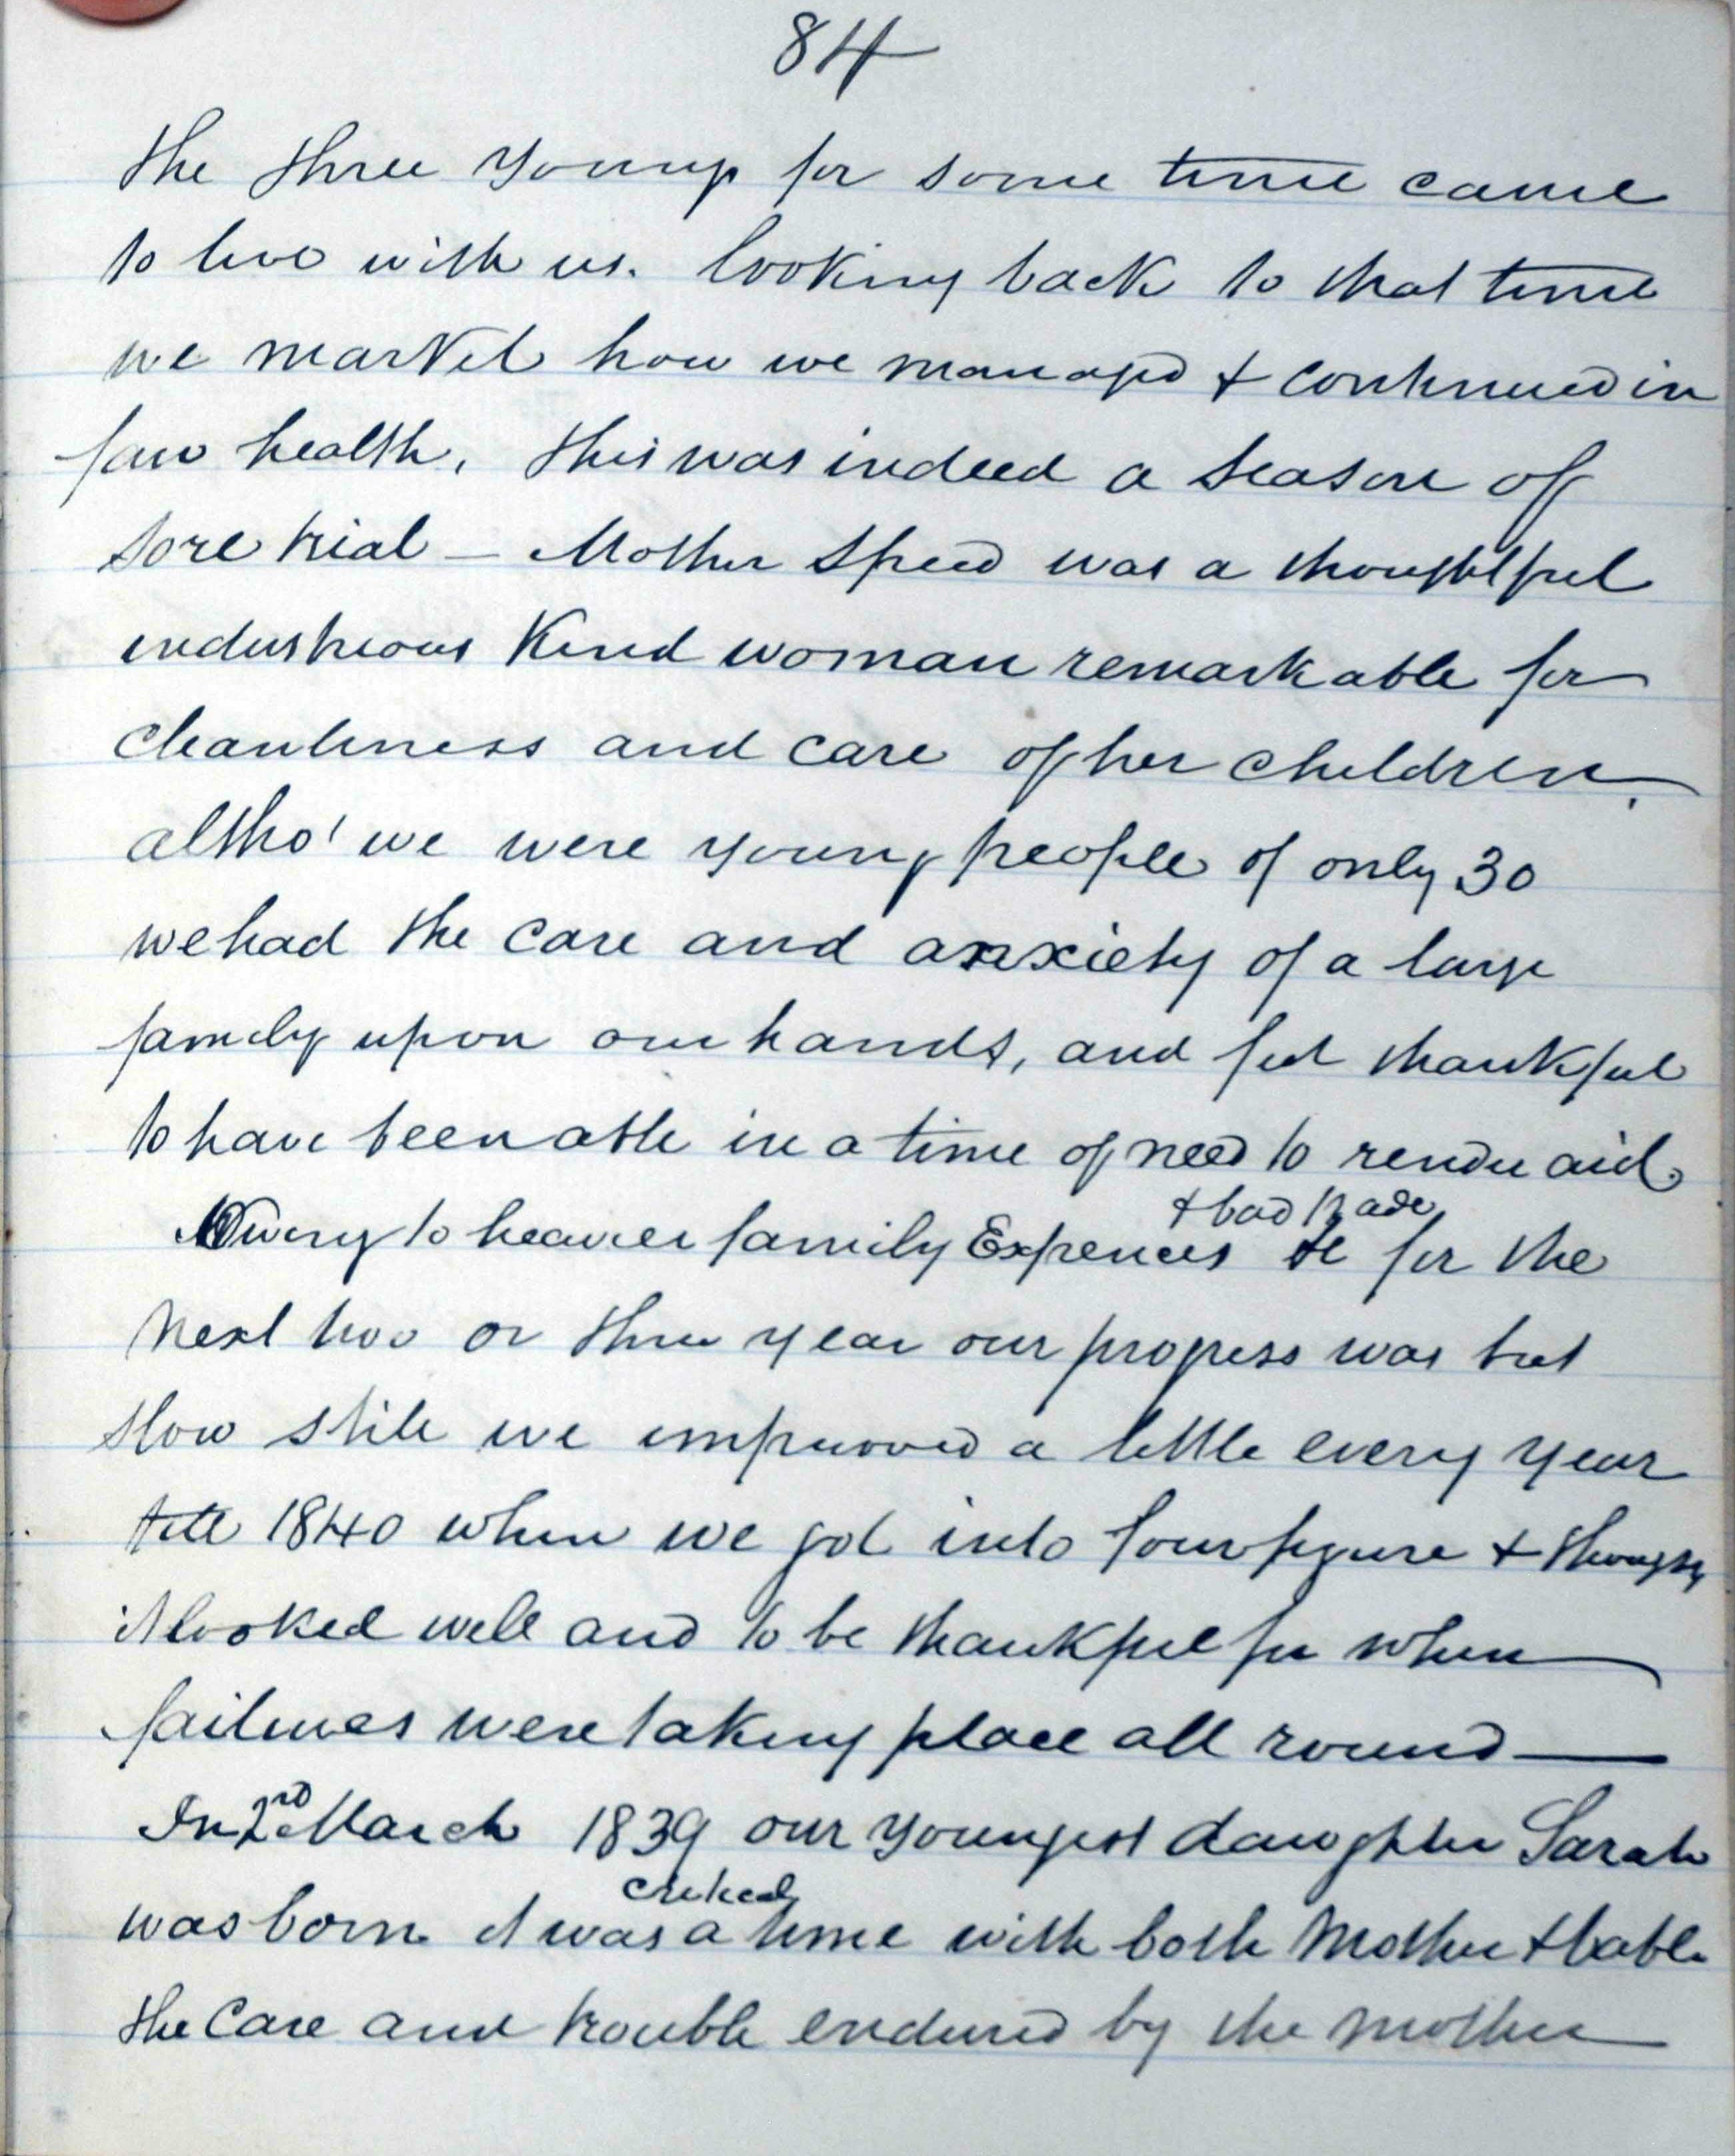 84
the three young for some time came
to live with us. looking back to that time
we marvel how we managed & continued in
fair health, this was indeed a season of
sore trial — Mother Speed was a thoughtful
industrious Kind woman remarkable for
cleanliness and care of her children.
altho' we were young people of only 30
we had the care and anxiety of a large
family upon our hands, and feel thankful
to have been able in a time of need to render aid.
& bad trade
Owing to heavier family Expences for the
next two or three year our progress was but
slow still we improved a little every year
till 1840 when we got into four figure & thought
it looked well and to be thankful for when
failures were taking place all round —
In 2nd March 1839 our youngest daughter Sarah
critical
was born it was a time with both Mother & babe
the Care and trouble endured by the mother